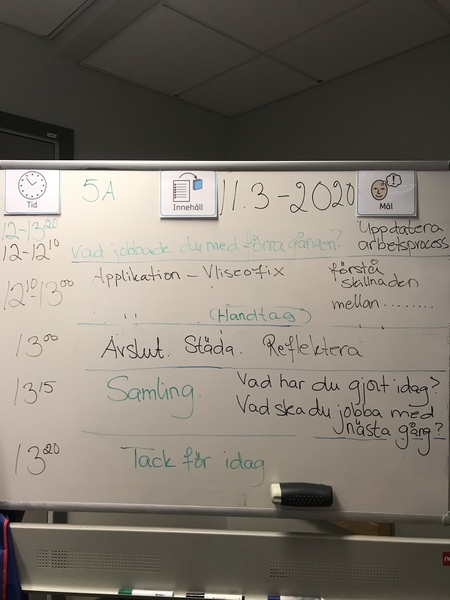 Tid
5A
Innehåll
11.3-2020
Mål
12-13²⁰
12-12¹⁰
Vad jobbade du med förra gången?
Uppdatera
arbetsprocess
12¹⁰-13⁰⁰
Applikation - Vliseofix
förstå
skillnaden
mellan ........
(Handtag)
13⁰⁰
Avslut. Städa. Reflektera
13¹⁵
Samling.
Vad har du gjort idag?
Vad ska du jobba med
nästa gång?
13²⁰
Tack för idag